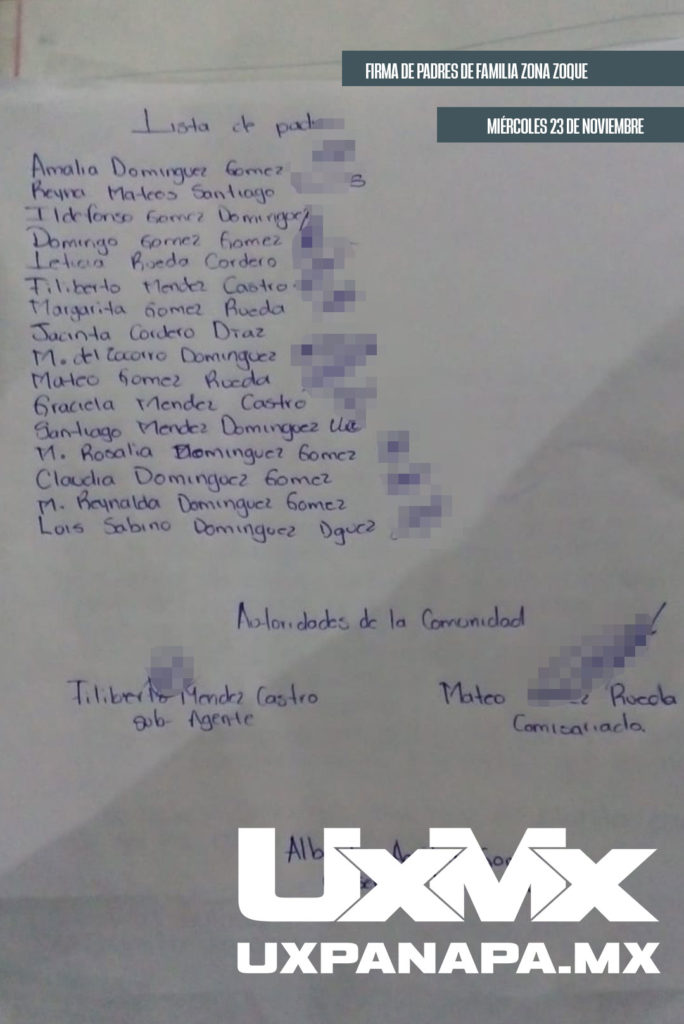 FIRMA DE PADRES DE FAMILIA ZONA ZOQUE
MIÉRCOLES 23 DE NOVIEMBRE
Lista de
Amalia Dominguez Gomez
Reyna Mateos Santiago
Ildefonso Gomez Dominguez
Domingo Gomez Gomez
Leticia Rueda Cordero
Filiberto Mendez Castro
Margarita Gomez Rueda
Jacinta Cordero Díaz
M. del Dominguez
Mateo Gomez Rueda
Graciela Mendez Castro
Santiago Mendez Dominguez
M. Rosalia Dominguez Gomez
Claudia Dominguez Gomez
M. Reynalda Dominguez Gomez
Luis Sabino Dominguez Dguez
Autoridades de la Comunidad
Filiberto Mendez Castro
Mateo Rueda
Sub Agente
Comisariado.
UxMx
UXPANAPA.MX